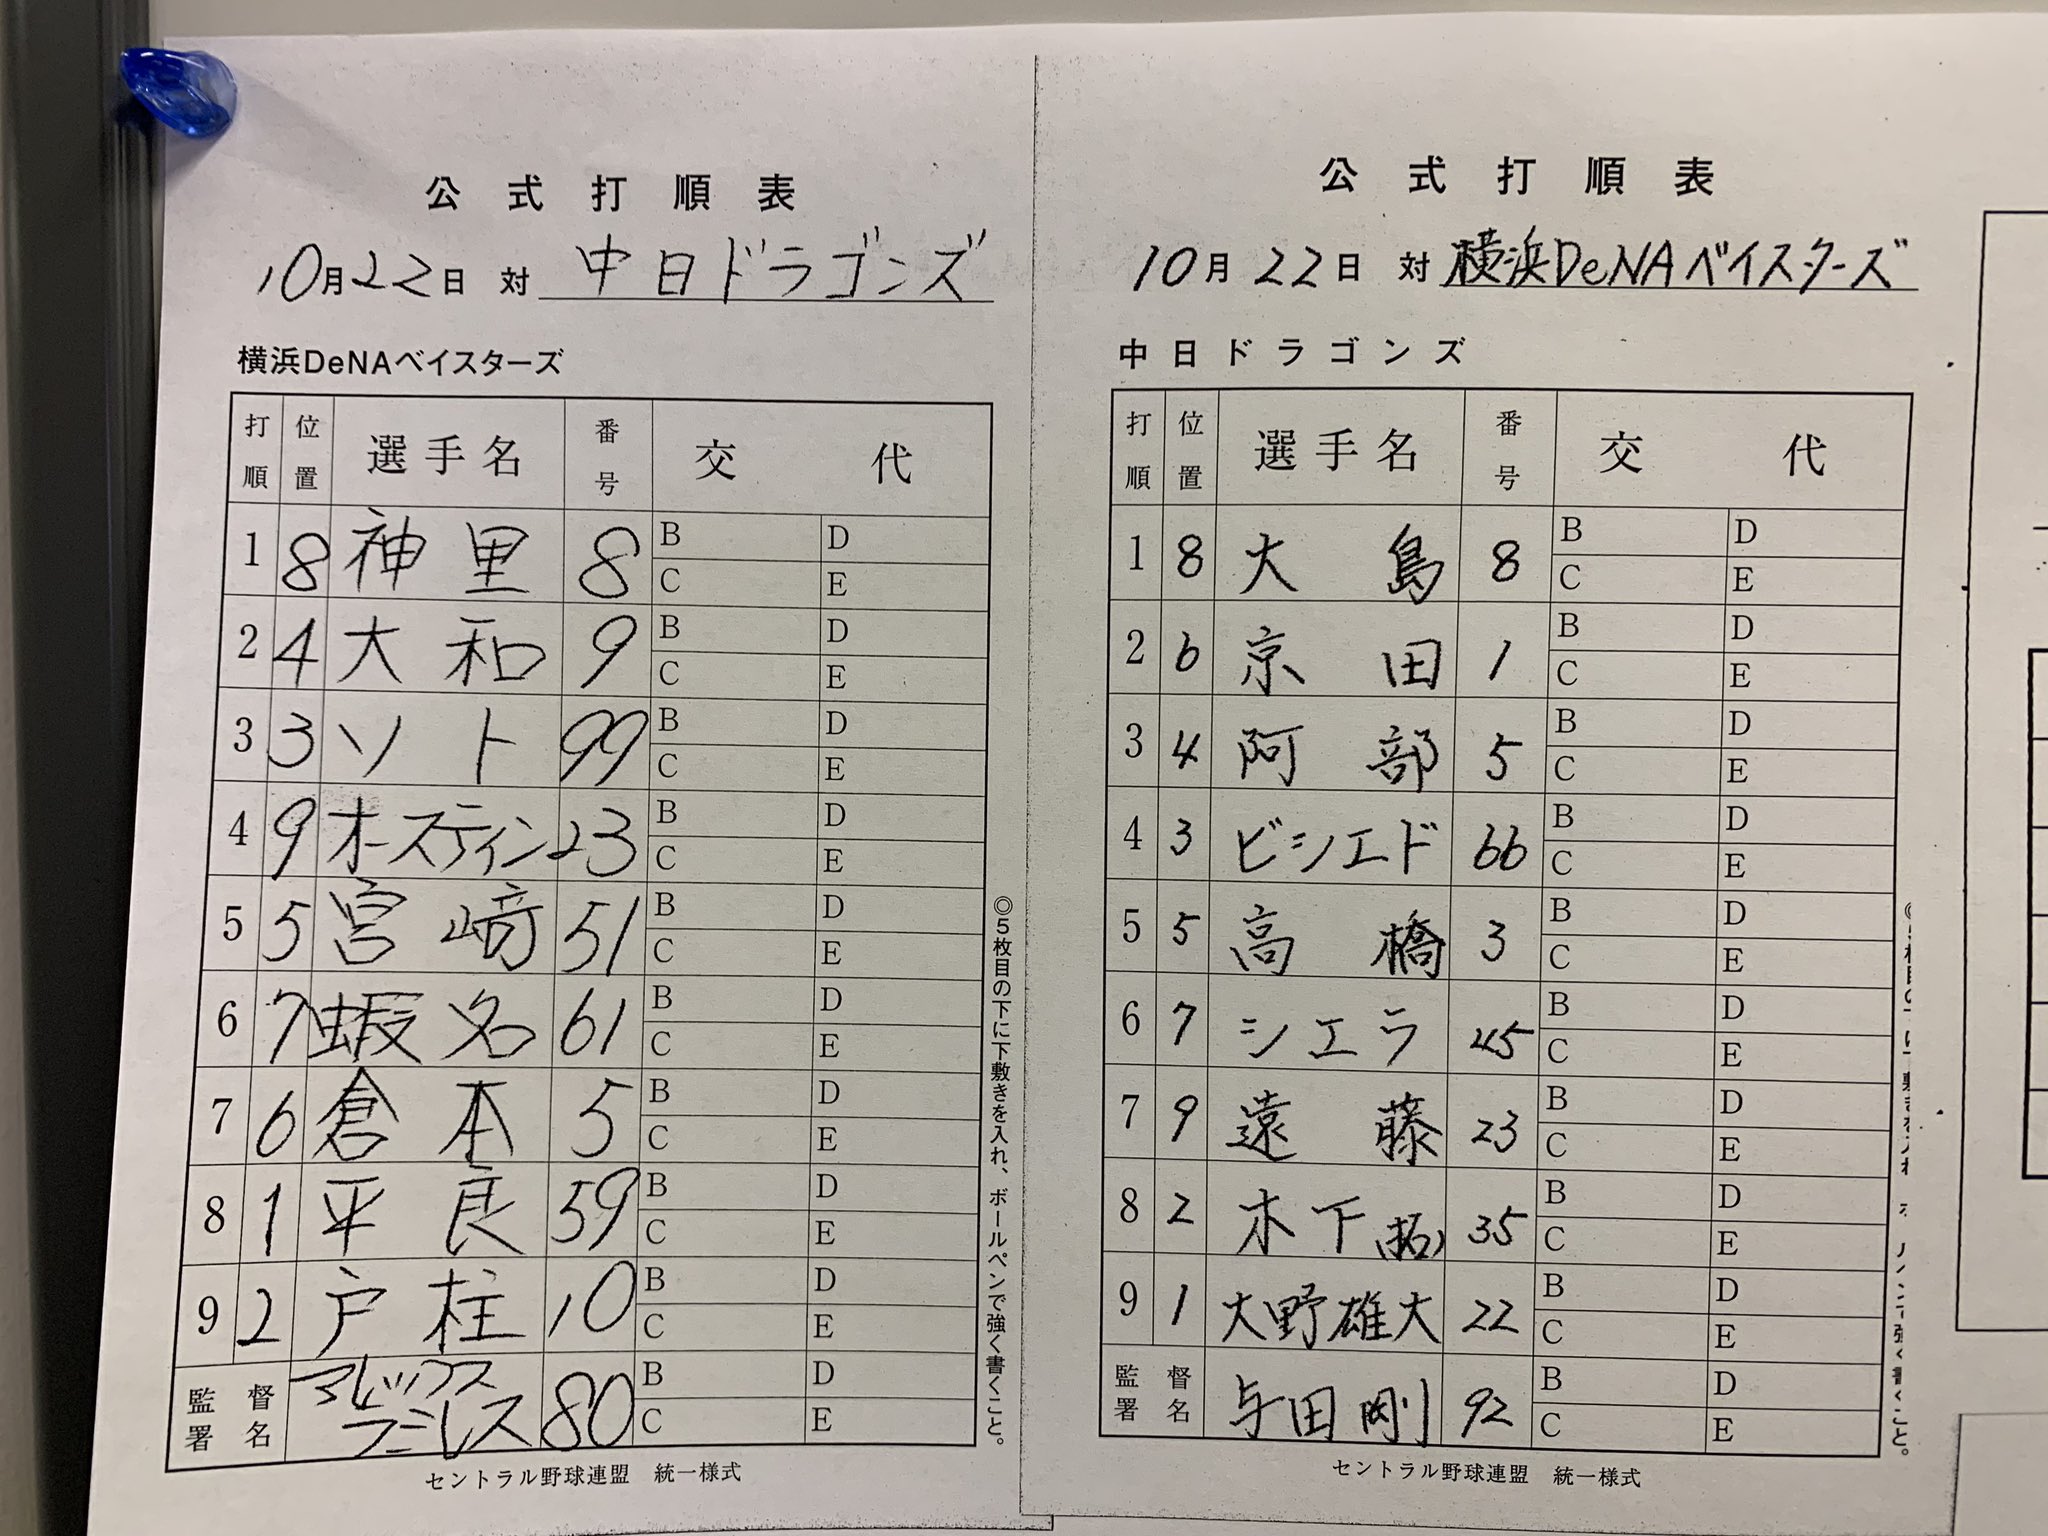 公式打順表
10月22日 対 中日ドラゴンズ
横浜DeNAベイスターズ
打順 位置 選手名 番号 交代
1 8 神里 8 B D C E
2 4 大和 9 B D C E
3 3 ソト 99 B D C E
4 9 オースティン 23 B D C E
5 5 宮﨑 51 B D C E
6 7 蝦名 61 B D C E
7 6 倉本 5 B D C E
8 1 平良 59 B D C E
9 2 戸柱 10 B D C E
監督署名 アレックスラミレス 80 B D C E
セントラル野球連盟 統一様式
◎5枚目の下に下敷きを入れ、ボールペンで強く書くこと。
公式打順表
10月22日 対 横浜DeNAベイスターズ
中日ドラゴンズ
打順 位置 選手名 番号 交代
1 8 大島 8 B D C E
2 6 京田 1 B D C E
3 4 阿部 5 B D C E
4 3 ビシエド 66 B D C E
5 5 高橋 3 B D C E
6 7 シエラ 45 B D C E
7 9 遠藤 23 B D C E
8 2 木下(拓) 35 B D C E
9 1 大野雄大 22 B D C E
監督署名 与田剛 92 B D C E
セントラル野球連盟 統一様式